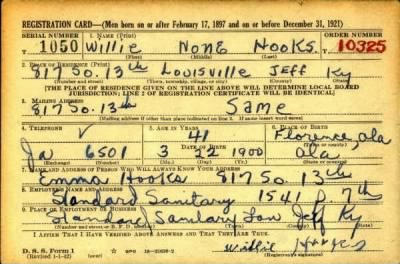 REGISTRATION CARD—(Men born on or after February 17, 1897 and on or before December 31, 1921)
SERIAL NUMBER 1. NAME (Print) ORDER NUMBER
T 1050 Willie None Hooks. 10325
(First) (Middle) (Last)
2. PLACE OF RESIDENCE (Print)
817 So. 13th Louisville Jeff Ky
(Number and street) (Town, township, village, or city) (County) (State)
[THE PLACE OF RESIDENCE GIVEN ON THE LINE ABOVE WILL DETERMINE LOCAL BOARD
JURISDICTION; LINE 2 OF REGISTRATION CERTIFICATE WILL BE IDENTICAL]
3. MAILING ADDRESS
817 So. 13th Same
[Mailing address if other than place indicated on line 2. If same insert word same]
4. TELEPHONE 5. AGE IN YEARS 6. PLACE OF BIRTH
41 Florence, Ala
DATE OF BIRTH
Ja 6501 3 22 1900 Ala
(Exchange) (Number) (Mo.) (Day) (Yr.) (State or country)
7. NAME AND ADDRESS OF PERSON WHO WILL ALWAYS KNOW YOUR ADDRESS
Emma Hooks 817 So 13th
8. EMPLOYER'S NAME AND ADDRESS
Standard Sanitary 1541 S. 7th
9. PLACE OF EMPLOYMENT OR BUSINESS
Standard Sanitary Lou Jeff Ky
(Number and street or R. F. D. number) (Town) (County) (State)
I AFFIRM THAT I HAVE VERIFIED ABOVE ANSWERS AND THAT THEY ARE TRUE.
D. S. S. Form 1
(Revised 1-1-42) (over)
Willie Hooks
(Registrant's signature)